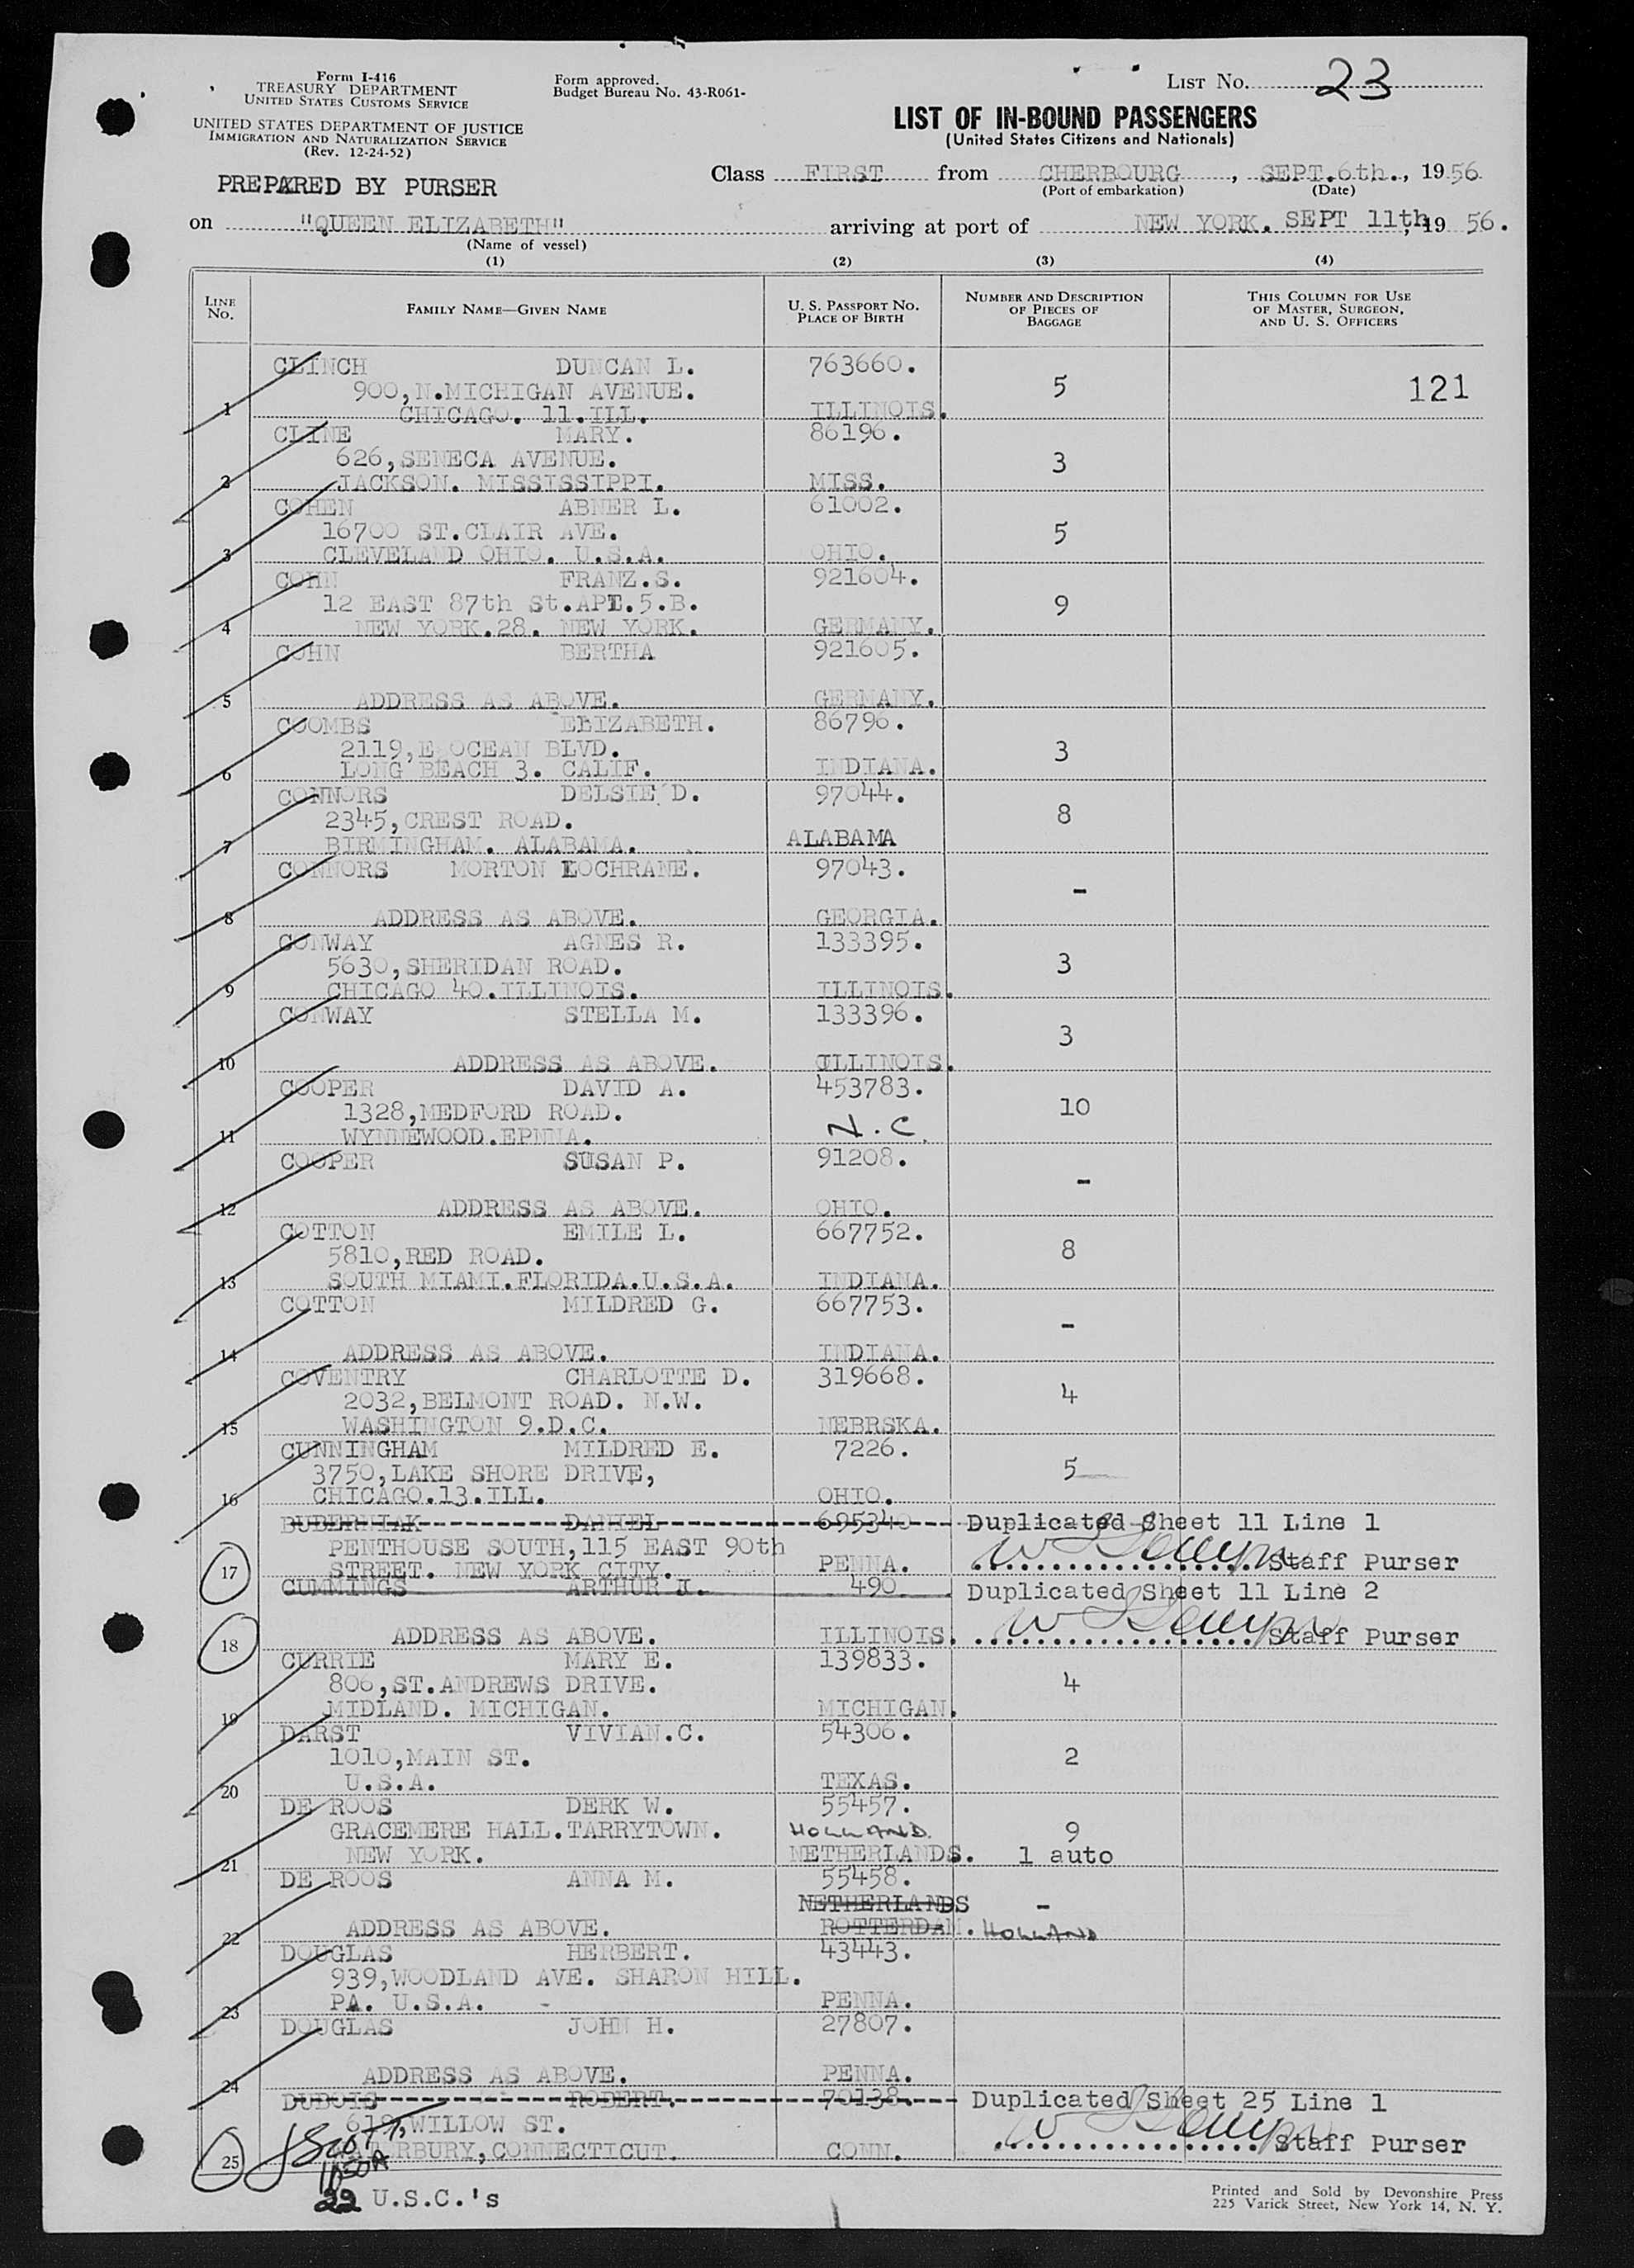 Form I-416
TREASURY DEPARTMENT
UNITED STATES CUSTOMS SERVICE
UNITED STATES DEPARTMENT OF JUSTICE
IMMIGRATION AND NATURALIZATION SERVICE
(Rev. 12-24-52)
Form approved.
Budget Bureau No. 43-R061-
LIST NO. 23
LIST OF IN-BOUND PASSENGERS
(United States Citizens and Nationals)
PREPARED BY PURSER
Class FIRST from CHERBOURG, SEPT.6th., 1956
(Port of embarkation) (Date)
on "QUEEN ELIZABETH" arriving at port of NEW YORK. SEPT 11th, 19 56.
(Name of vessel)
(1) (2) (3) (4)
LINE NO. FAMILY NAME—GIVEN NAME U. S. PASSPORT NO. PLACE OF BIRTH NUMBER AND DESCRIPTION OF PIECES OF BAGGAGE THIS COLUMN FOR USE OF MASTER, SURGEON, AND U. S. OFFICERS
CLINCH DUNCAN L. 763660.
900,N.MICHIGAN AVENUE. 5 121
1 CHICAGO. 11.ILL. ILLINOIS.
CLINE MARY. 86196.
626,SENECA AVENUE. 3
2 JACKSON. MISSISSIPPI. MISS.
COHEN ABNER L. 61002.
16700 ST.CLAIR AVE. 5
3 CLEVELAND OHIO. U.S.A. OHIO.
COHN FRANZ.S. 921604.
12 EAST 87th St.APT.5.B. 9
4 NEW YORK.28. NEW YORK. GERMANY.
COHN BERTHA 921605.
5 ADDRESS AS ABOVE. GERMANY.
COOMBS ELIZABETH. 86796.
2119,E OCEAN BLVD. 3
6 LONG BEACH 3. CALIF. INDIANA.
CONNORS DELSIE D. 97044.
2345,CREST ROAD. 8
7 BIRMINGHAM. ALABAMA. ALABAMA
CONNORS MORTON LOCHRANE. 97043.
-
8 ADDRESS AS ABOVE. GEORGIA.
CONWAY AGNES R. 133395.
5630,SHERIDAN ROAD. 3
9 CHICAGO 40.ILLINOIS. ILLINOIS.
CONWAY STELLA M. 133396.
3
10 ADDRESS AS ABOVE. ILLINOIS.
COOPER DAVID A. 453783.
1328,MEDFORD ROAD. 10
11 WYNNEWOOD.EPNNA. N.C.
COOPER SUSAN P. 91208.
-
12 ADDRESS AS ABOVE. OHIO.
COTTON EMILE L. 667752.
5810,RED ROAD. 8
13 SOUTH MIAMI.FLORIDA.U.S.A. INDIANA.
COTTON MILDRED G. 667753.
-
14 ADDRESS AS ABOVE. INDIANA.
COVENTRY CHARLOTTE D. 319668.
2032,BELMONT ROAD. N.W. 4
15 WASHINGTON 9.D.C. NEBRSKA.
CUNNINGHAM MILDRED E. 7226.
3750,LAKE SHORE DRIVE, 5
16 CHICAGO.13.ILL. OHIO.
BUDERNIAK DANIEL 695340 Duplicated Sheet 11 Line 1
PENTHOUSE SOUTH,115 EAST 90th
17 STREET. NEW YORK CITY. PENNA. Staff Purser
CUMMINGS ARTHUR I. 490 Duplicated Sheet 11 Line 2
18 ADDRESS AS ABOVE. ILLINOIS. Staff Purser
CURRIE MARY E. 139833.
806,ST.ANDREWS DRIVE. 4
19 MIDLAND. MICHIGAN. MICHIGAN.
DARST VIVIAN.C. 54306.
1010,MAIN ST. 2
20 U.S.A. TEXAS.
DE ROOS DERK W. 55457.
GRACEMERE HALL.TARRYTOWN. HOLLAND. 9
21 NEW YORK. NETHERLANDS. 1 auto
DE ROOS ANNA M. 55458.
NETHERLANDS -
22 ADDRESS AS ABOVE. ROTTERDAM. HOLLAND
DOUGLAS HERBERT. 43443.
939,WOODLAND AVE. SHARON HILL.
23 PA. U.S.A. - PENNA.
DOUGLAS JOHN H. 27807.
24 ADDRESS AS ABOVE. PENNA.
DUBOIS ROBERT. 70138. Duplicated Sheet 25 Line 1
WILLOW ST.
25 WATERBURY,CONNECTICUT. CONN. Staff Purser
22 U.S.C.'s
Printed and Sold by Devonshire Press
225 Varick Street, New York 14, N. Y.